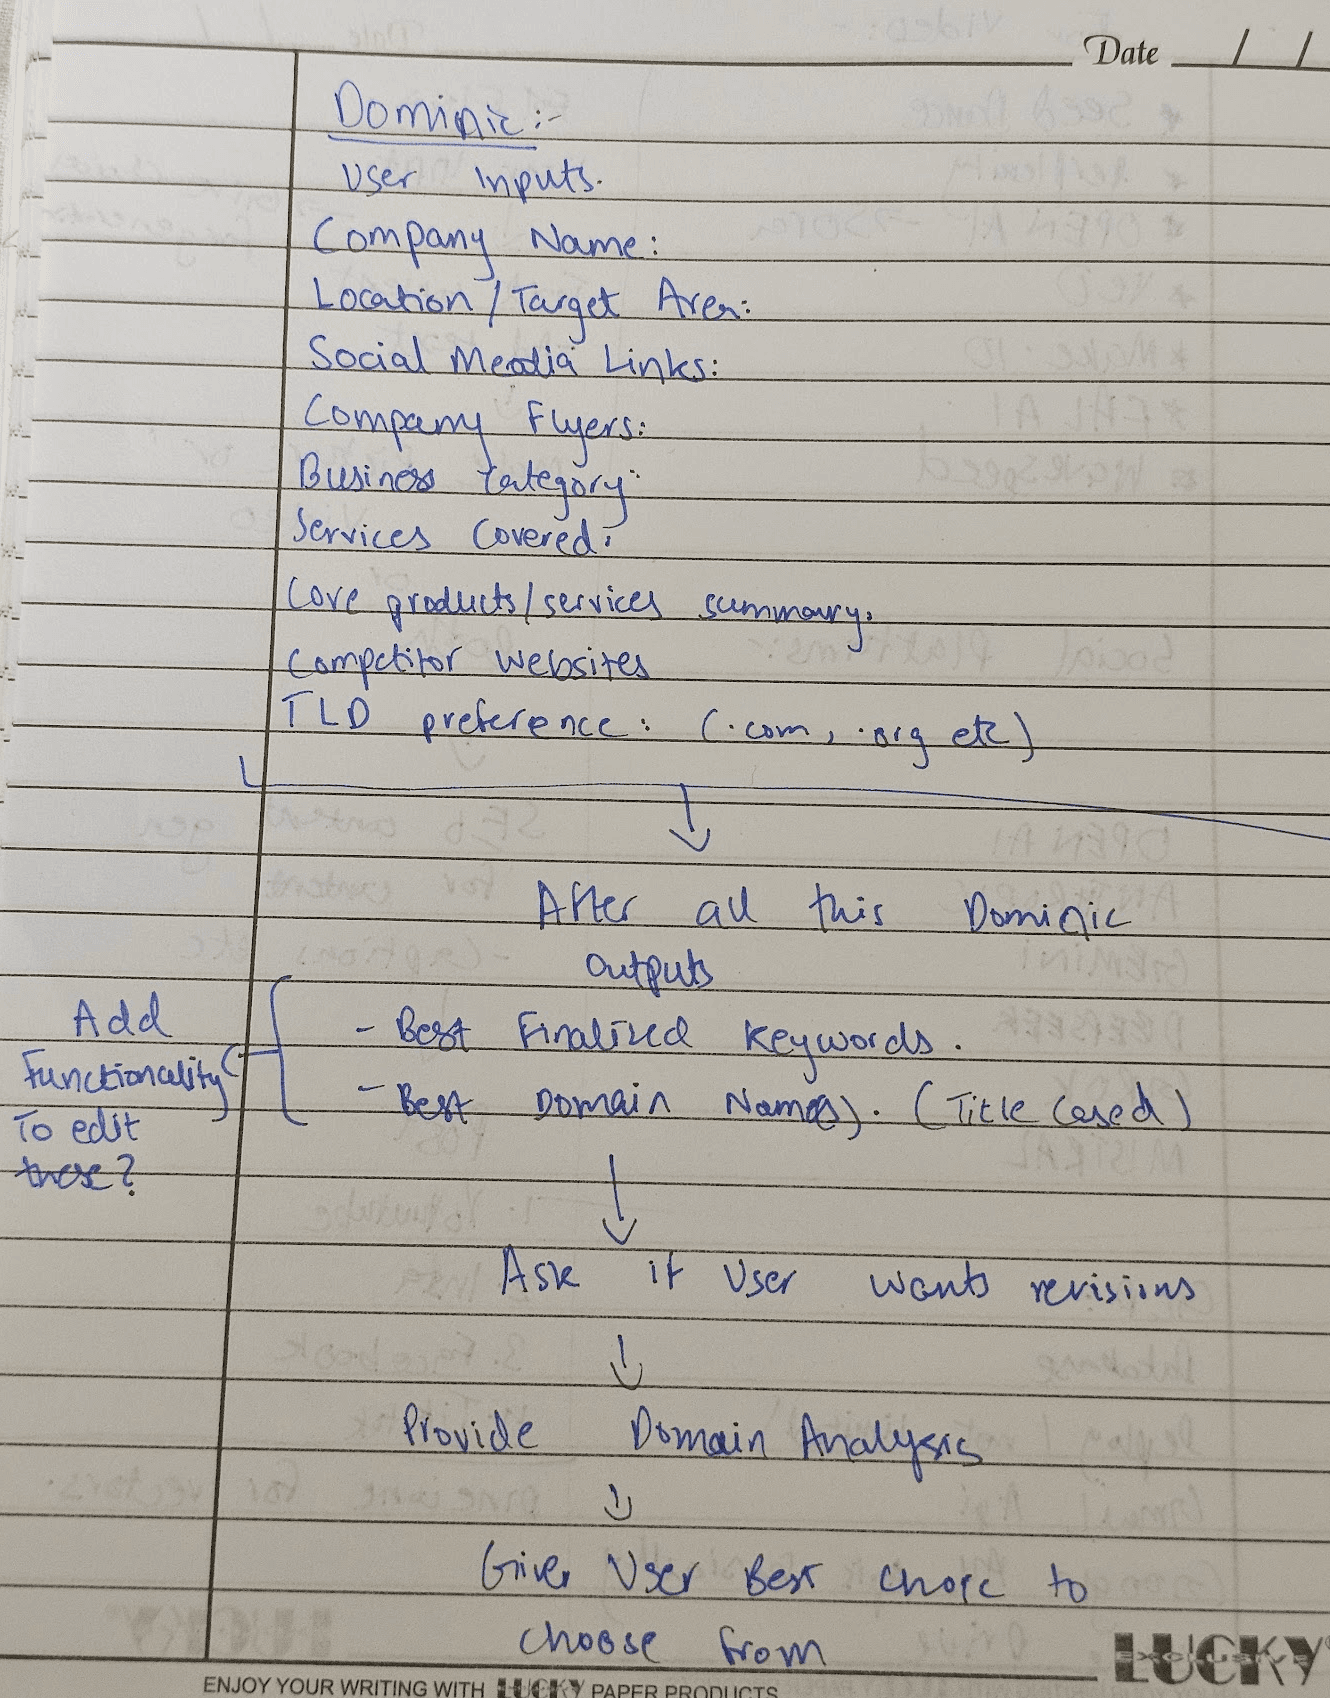 Date / /
Dominic:-
User Inputs.
Company Name:
Location / Target Area:
Social Meadia Links:
Company Flyers:
Business Category:
Services Covered:
Core products/services summary.
Competitor websites
TLD preference: (.com, .org etc)
After all this Dominic
outputs
- Best Finalized Keywords.
- Best Domain Name(s). (Title Cased)
Add
Functionality
To edit
these?
Ask if User wants revisions
Provide Domain Analysis
Give User Best choic to
choose from
LUCKY
EXCLUSIVE
ENJOY YOUR WRITING WITH LUCKY PAPER PRODUCTS